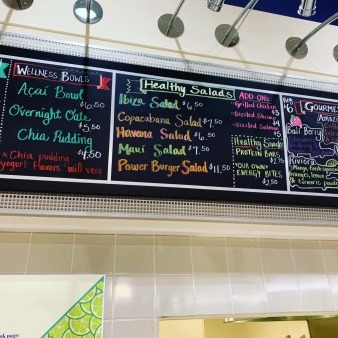 Wellness Bowls
Açaí Bowl
$10.50
Overnight Oats
$5.50
Chia Pudding
$4.50
* Chia pudding
yogurt flavors will vary
Healthy Salads
Ibiza Salad $6.50
Copacabana Salad $7.50
Havana Salad $6.50
Maui Salad $7.50
Power Burger Salad $11.50
ADD-ONS:
Grilled Chicken
Sizzled Shrimp
$5
Sizzled Salmon
$5
Healthy Snacks
PROTEIN BARS
$2.75
YOUR OWN
ENERGY BITES
$3.50
Reg
$6
GOURME
Bali Berry
Riviera
Mango, fresh squeezed
oranges, lemon &
turmeric powder